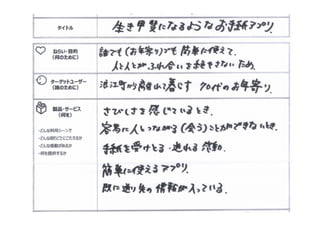 タイトル
生き甲斐になるようなお手紙アプリ.
ねらい・目的
(何のために)
誰でも(お年寄り)でも簡単に使えて.
人と人とがふれ合いを絶やさないため.
ターゲットユーザー
(誰のために)
浪江町から離れて暮らす 70代のお年寄り.
製品・サービス
(何を)
-どんな利用シーンで
-どんな困りごとにこたえるか
-どんな感動があるか
-何を提供するか
さびしさを感じているとき.
容易に人とつながる(会う)ことができないとき.
手紙を受けとる・送れる感動.
簡単に使えるアプリ.
既に送り先の情報が入っている.